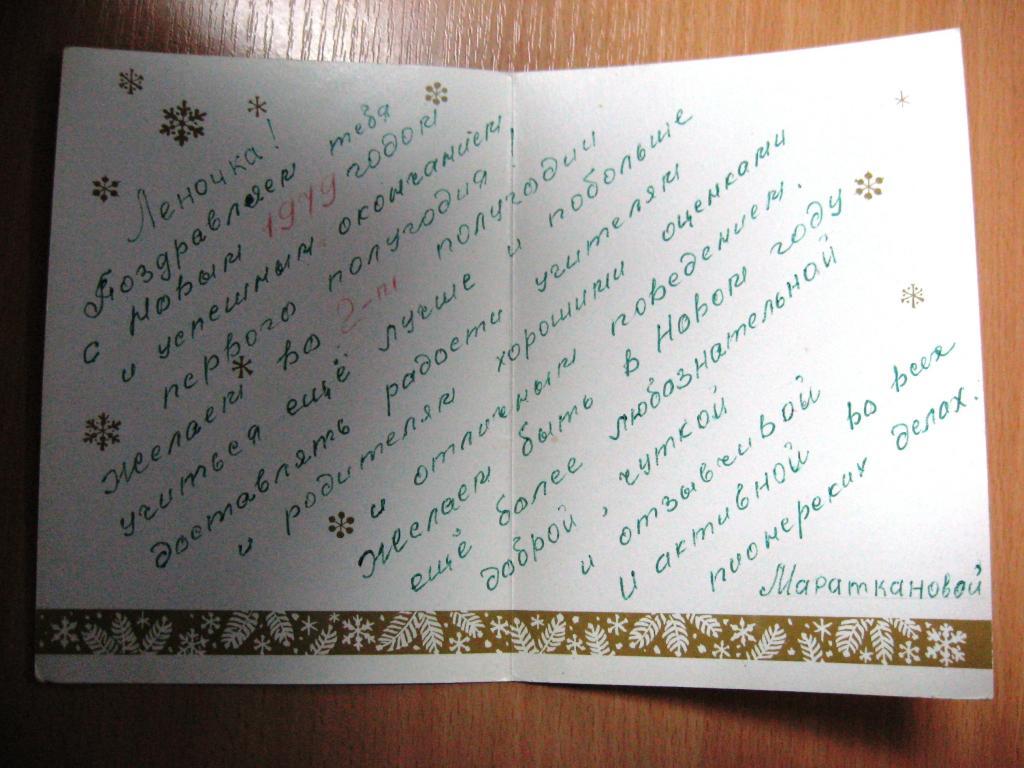 Леночка!
Поздравляем тебя
с Новым 1979 годом
и успешным окончанием
первого полугодия
Желаем во 2-м полугодии
учиться ещё лучше и побольше
доставлять радости учителям
и родителям хорошими оценками
и отличным поведением.
Желаем быть в Новом году
ещё более любознательной
доброй, чуткой
и отзывчивой
и активной во всех
пионерских делах.
Мараткановой